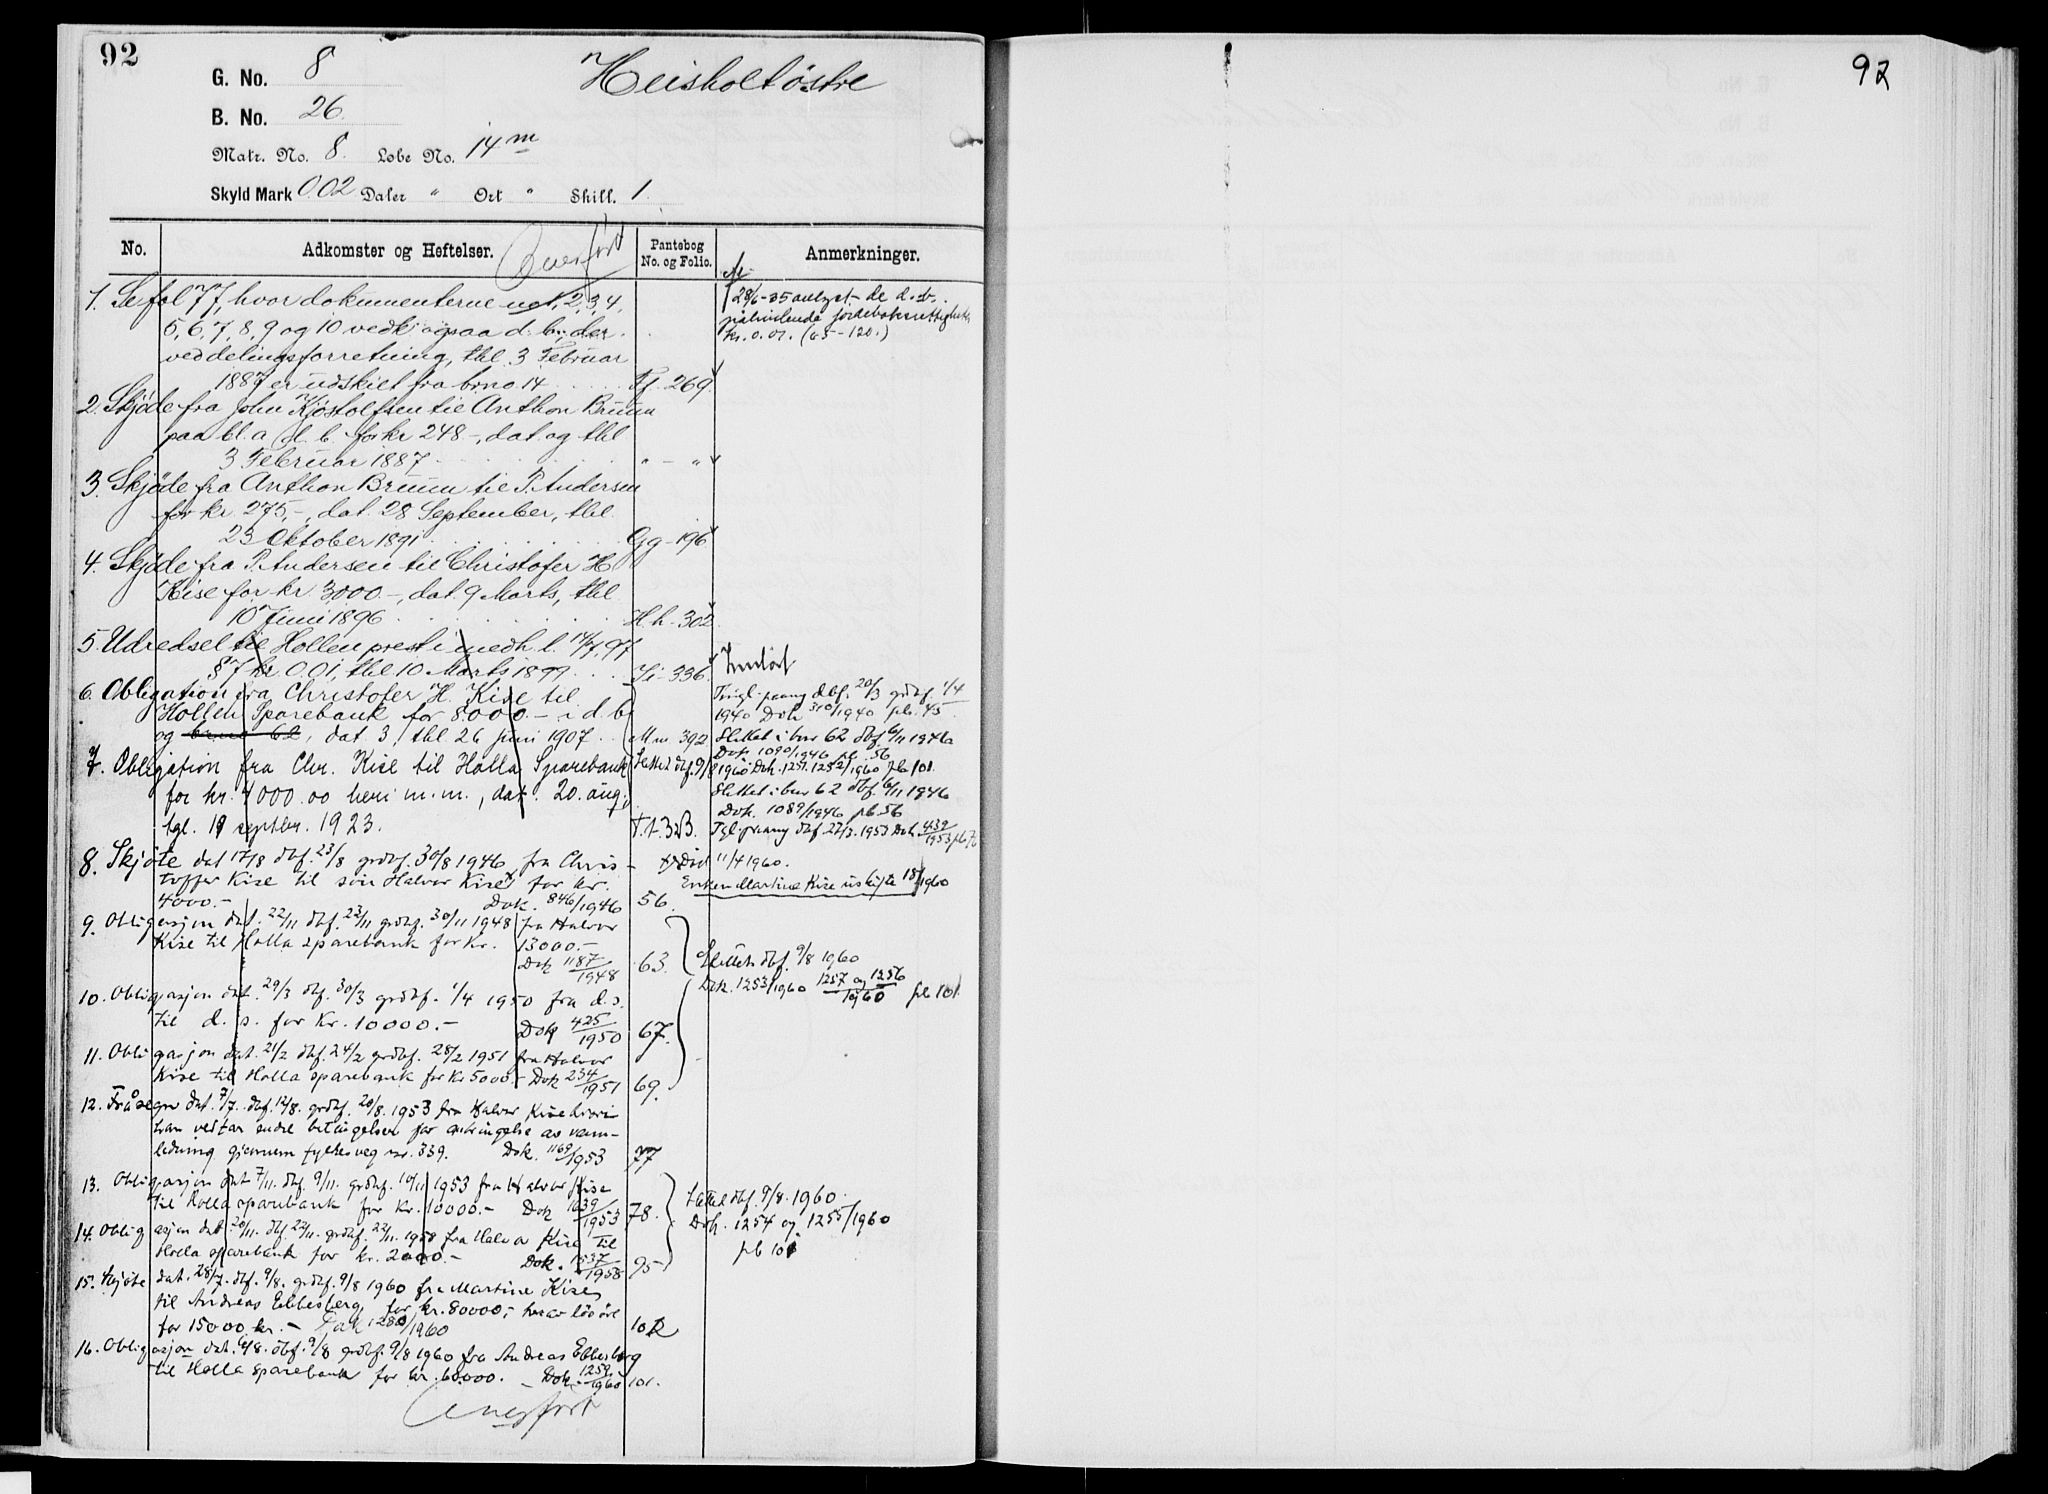 92
G. No. 8
Heisholt östre
B. No. 26.
Matr. No. 8. Løbe No. 14 m
Skyld Mark 0.02 Daler " Ort " Skill. 1.
No. Adkomster og Heftelser. Overført Pantebog No. og Folio. Anmerkninger.
1. Se fol 77, hvor dokumenterne 2, 3, 4,
5, 6, 7, 8, 9 og 10 vedk. ogsaa d. b., der
ved delingsforretning, thl 3 Februar
1887 er udskilt fra brno 14 Ff. 269.
28/6-35 avlyst de d. b.
påhvilende jordebokrettigheter
kr. 0.01. (65-120.)
2. Skjøde fra John Kjöstolfsen til Anthon Bruun
paa bl. a. d. b. for kr 248-, dat og thl
3 Februar 1887 " - "
3. Skjøde fra Anthon Bruun til P. Andersen
for kr. 275,-, dat. 28 September, thl
23 Oktober 1891 Gg - 196
4. Skjøde fra P. Andersen til Christofer H
Kise for kr 3000.-, dat. 9 Marts, thl
10 Juni 1896 Hh - 302
5. Udredsel til Hollen prest i medh. l. 14/7 97
§ 7 kr 0.01, thl 10 Marts 1899 Ii - 336. Innløst
6. Obligation fra Christofer H. Kise til
Hollen Sparebank for 8000.- i d. b
og brno 62, dat 3, thl 26 juni 1907 Mm. 392
Tingl. dbf. 20/3 grdbf. 1/4
1940 Dok 310/1940 pb. 45
Slettet i bnr 62 dbf 6/11 1946
Dok 1090/1946 pb. 56
7. Obligation fra Chr. Kise til Holla Sparebank
for kr. 4000.00 heri m. m., dat. 20. aug.,
tgl. 19 septbr. 1923.
Slettet dbf. 9/8 1960 Dok. 1251. 1252/1960 pb 101.
Slettet i bnr 62 dbf. 6/11 1946
Dok. 1089/1946 pb 56
Tgl. dbf 27/3. 1953 Dok 439/1953 pb 76
8. Skjøte dat 17/8 dbf. 23/8 grdbf. 30/8 1946 fra Chris-
toffer Kise til sön Halvor Kise x for kr.
4000.- Dok. 846/1946 56.
x Död 11/4 1960.
Enken Martine Kise uskifte 18/ 1960
9. Obligasjon dat. 22/11 dbf. 23/11 grdbf. 30/11 1948 fra Halvor
Kise til Holla sparebank for kr. 13000.-
Dok 1187/1948 63.
Slettet dbf. 9/8 1960
Dok. 1253/1960 1257 og 1256/1960 pb 101.
10. Obligasjon dat. 29/3 dbf. 30/3 grdbf. 1/4 1950 fra d. s.
til d. s. for kr. 10000.- Dok 425/1950 67.
11. Obligasjon dat. 21/2 dbf. 24/2 grdbf. 28/2 1951 fra Halvor
Kise til Holla sparebank for kr 5000.- Dok 234/1951 69.
12. Fråsegn dat. 7/7. dbf. 12/8. grdbf. 20/8. 1953 fra Halvor Kise hvori
han vedtar endre betingelser for anbringelse av vann-
ledning gjennem fylkesveg nr. 339. Dok. 1169/1953 77
13. Obligasjon dat 7/11. dbf. 9/11. grdbf. 10/11 1953 fra Halvor Kise
til Holla sparebank for kr. 10000.- Dok 1639/1953 78.
Slettet dbf. 9/8. 1960.
Dok. 1254 og 1255/1960
pb 101
14. Obligasjon dat 20/11. dbf. 22/11. grdbf. 22/11. 1958 fra Halvor Kise til
Holla sparebank for kr. 2000.- Dok. 1537/1958 95
15. Skjøte dat. 28/7. dbf. 9/8. grdbf. 9/8 1960 fra Martine Kise
til Andreas Ebbesberg for kr. 80000,- herav lösöre
for 15000 kr.- Dok 1280/1960 102
16. Obligasjon dat. 6/8. dbf. 9/8 grdbf. 9/8 1960 fra Andreas Ebbesberg
til Holla sparebank for kr. 60000. - Dok. 1259/1960 101.
Overført
92